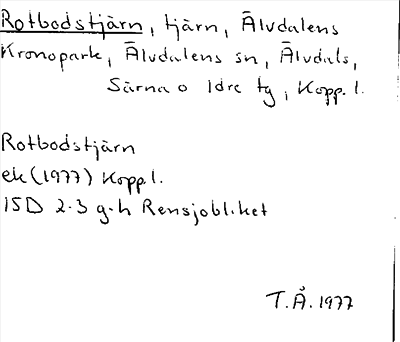 Rotbodstjärn, tjärn, Älvdalens
Kronopark, Älvdalens sn, Älvdals,
Särna o Idre tg, Kopp. l.
Rotbodstjärn
ek (1977) Kopp l.
15D 2-3 g-h Rensjobliket
T.Å. 1977